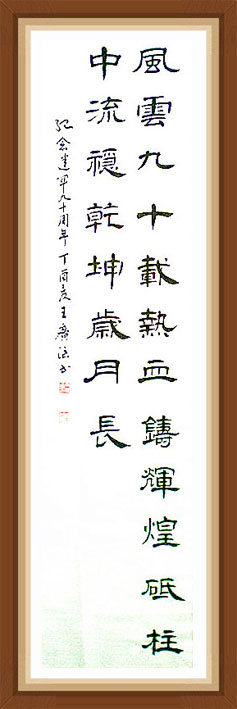 風雲九十載熱血鑄輝煌砥柱
中流穩乾坤歲月長
紀念建軍九十周年丁酉夏王廣法書